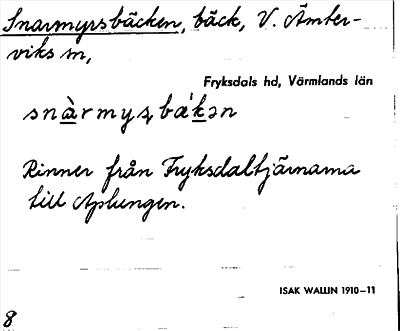 Snarmyrsbäcken, bäck, V. Ämter-
viks sn,
Fryksdals hd, Värmlands län
snàrmys bǽkən
Rinner från Fryksdaltjärnarna
till Aplungen.
ISAK WALLIN 1910–11
8